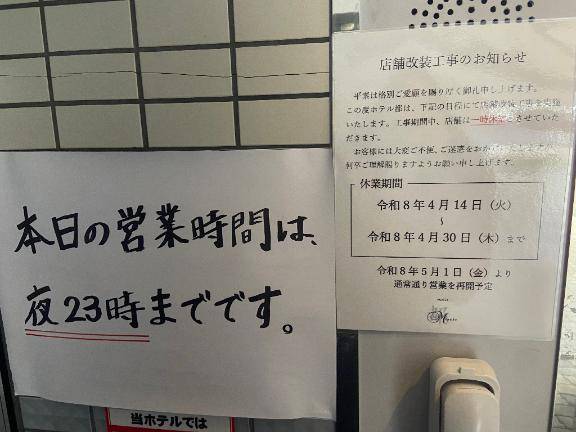 本日の営業時間は、
夜23時までです。
店舗改装工事のお知らせ
平素は格別ご愛顧を賜り厚く御礼申し上げます。
この度ホテル部は、下記の日程にて店舗改装工事を実施
いたします。工事期間中、店舗は一時休業とさせていた
だきます。
お客様には大変ご不便、ご迷惑をおかけ
何卒ご理解賜りますようお願い申し上げます。
休業期間
令和8年4月14日（火）
～
令和8年4月30日（木）まで
令和8年5月1日（金）より
通常通り営業を再開予定
当ホテルでは